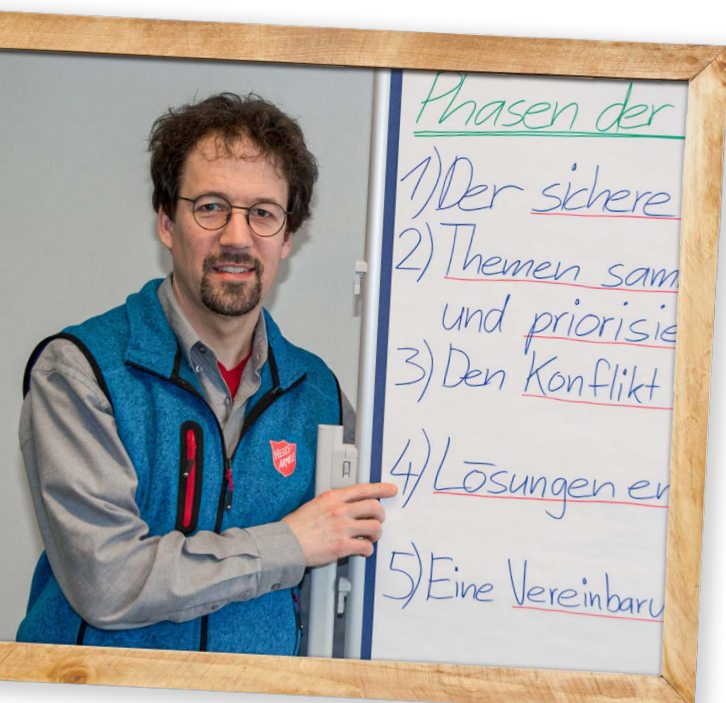 Phasen der
1) Der sichere
2) Themen sam
und priorisie
3) Den Konflikt
4) Lösungen er
5) Eine Vereinbaru
HEILS-
ARMEE